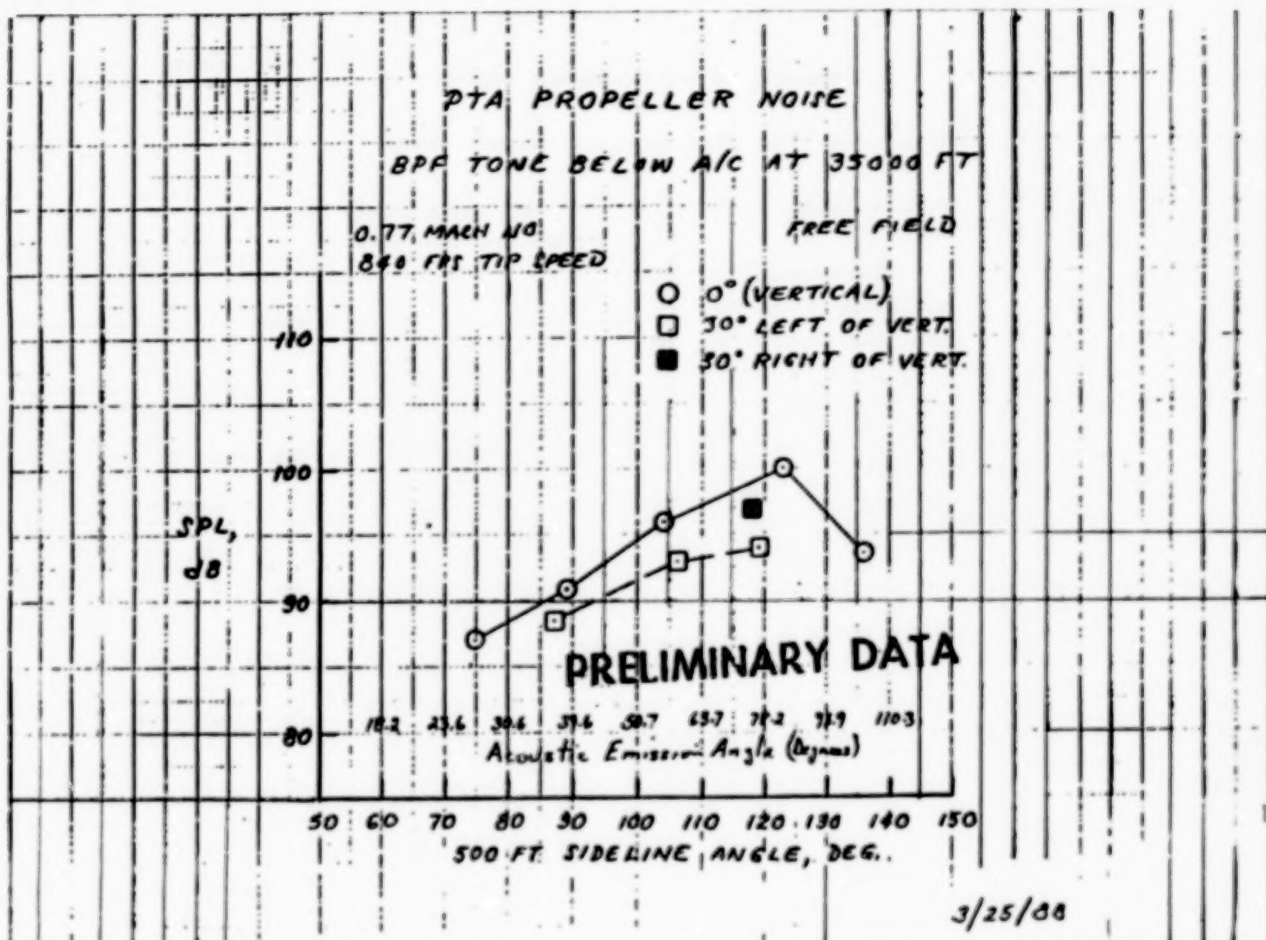 PTA PROPELLER NOISE
BPF TONE BELOW A/C AT 35000 FT
0.77 MACH NO
840 FPS TIP SPEED
FREE FIELD
0° (VERTICAL)
30° LEFT OF VERT.
30° RIGHT OF VERT.
110
100
SPL,
dB
90
PRELIMINARY DATA
80
18.2 23.6 30.6 39.6 50.7 63.7 78.2 93.9 110.3
Acoustic Emission Angle (Degrees)
50 60 70 80 90 100 110 120 130 140 150
500 FT SIDELINE ANGLE, DEG.
3/25/88